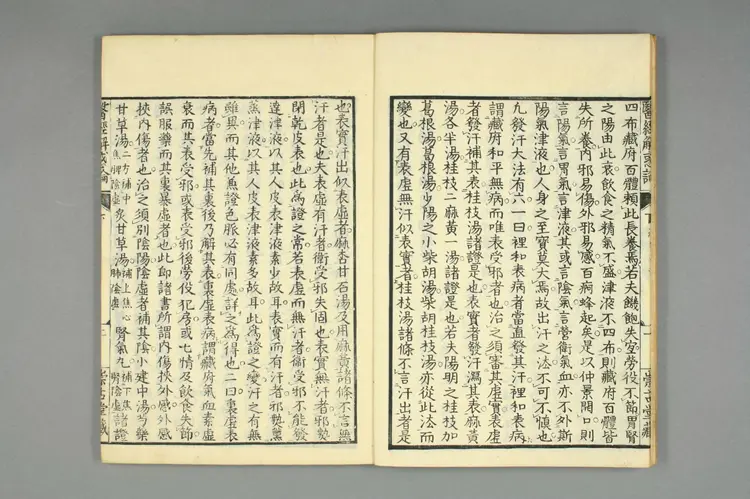 四布藏府百體賴此長養焉若夫饑飽失宜勞役不節胃腎
之陽由此衰飲食之精氣不盛津液不四布則藏府百體皆
失所養內邪易傷外邪易感百痾蜂起矣是以仲景開口則
言陽氣言胃氣言津液其或言陰氣言營衛氣血亦不外斯
陽氣津液也人身之至寶莫大焉故出汗之法不可不慎也
九發汗大法有六一曰裡和表病者當直發其汗裡和表病
謂藏府和平無病而唯表受邪者也治之須審其虛實表虛
者發汗補其表桂枝湯諸證是也表實者發汗瀉其表葛根
湯各半湯桂枝二麻黃一湯諸證是也若夫陽明之桂枝加
葛根湯葛根湯少陽之小柴胡湯柴胡桂枝湯亦從此法而
變也又有表虛無汗似表實者桂枝湯諸條不言汗出者是
也表實汗出似表虛者麻杏甘石湯及用麻黃諸條不言無
汗者是也夫表虛有汗者衛受邪失固也表實無汗者邪熱
閉乾皮表也此為證之常若表虛而無汗者衛受邪不能發
達津液以其人皮表津液素少故耳表實而有汗者邪熱熏
蒸津液以其人皮表津液素多故耳此為證之變汗之有無
雖異而其他無證色脈必有同處詳之為得也二曰裏虛表
病者當先補其裏後乃解其表裏虛表病謂藏府氣血素虛
衰而其表受邪或表受邪後勞役犯房或七情及飲食失節
誤服藥而其裏暴虛者也此即諸書所謂內傷挾外感外感
挾內傷者也治之須別陰陽陰虛者補其陰小建中湯芍藥
甘草湯二方補中焦脾陰虛炙甘草湯補上焦心肺陰虛腎氣丸補下焦腎陰虛諸證
醫經解惑論
崇古堂藏